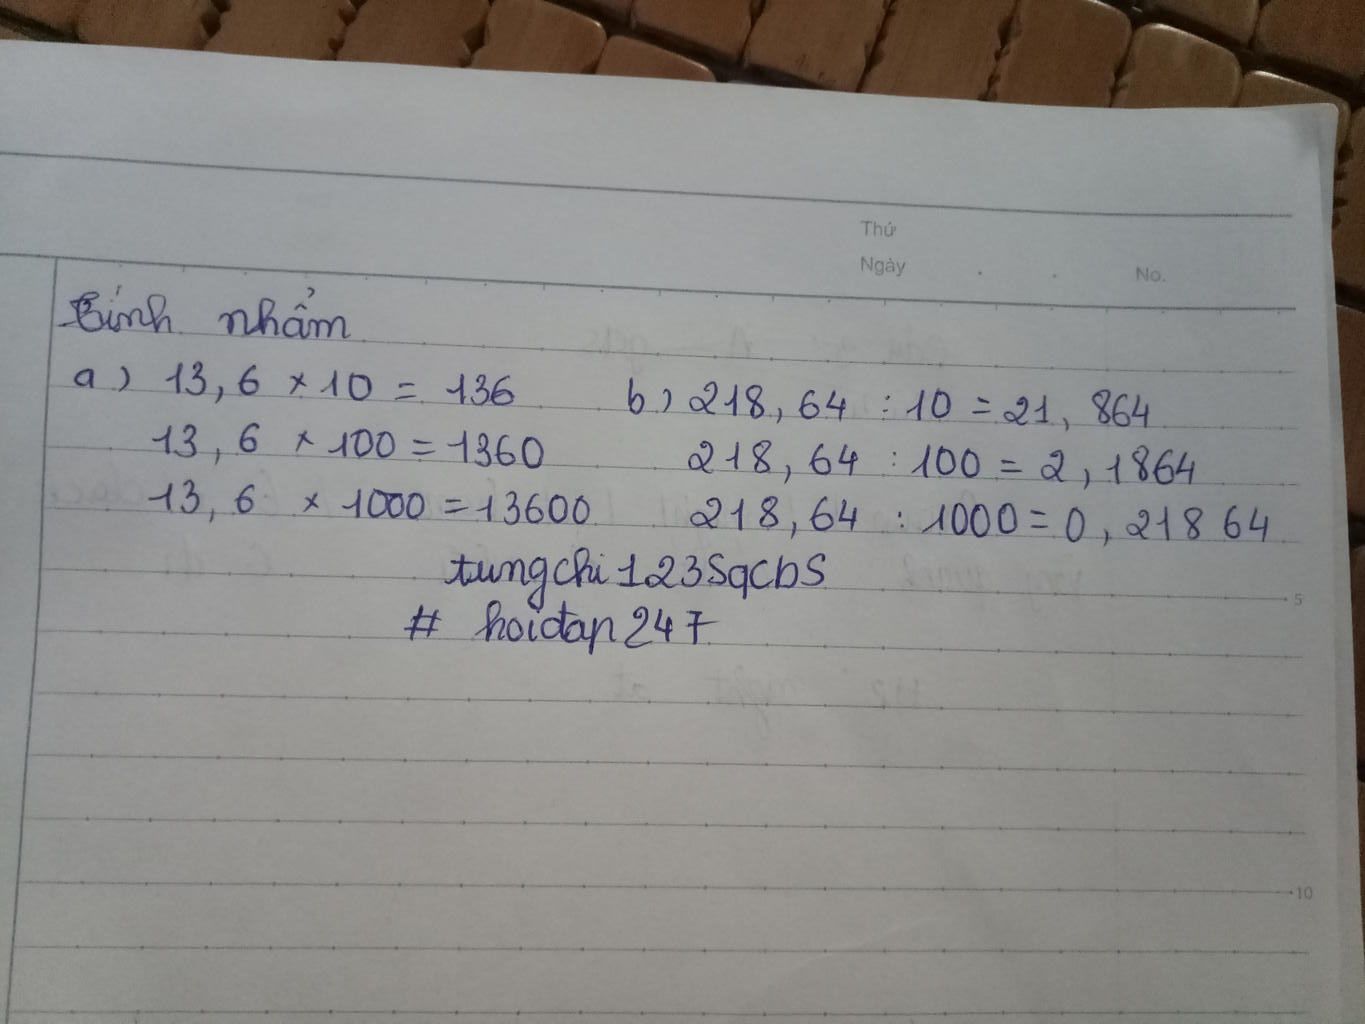 Thứ
Ngày . . No.
Tính nhẩm
a) 13,6 × 10 = 136 b) 218,64 : 10 = 21,864
13,6 × 100 = 1360 218,64 : 100 = 2,1864
13,6 × 1000 = 13600 218,64 : 1000 = 0,21864
tungchi123sqcbs
# hoidap247
5
10